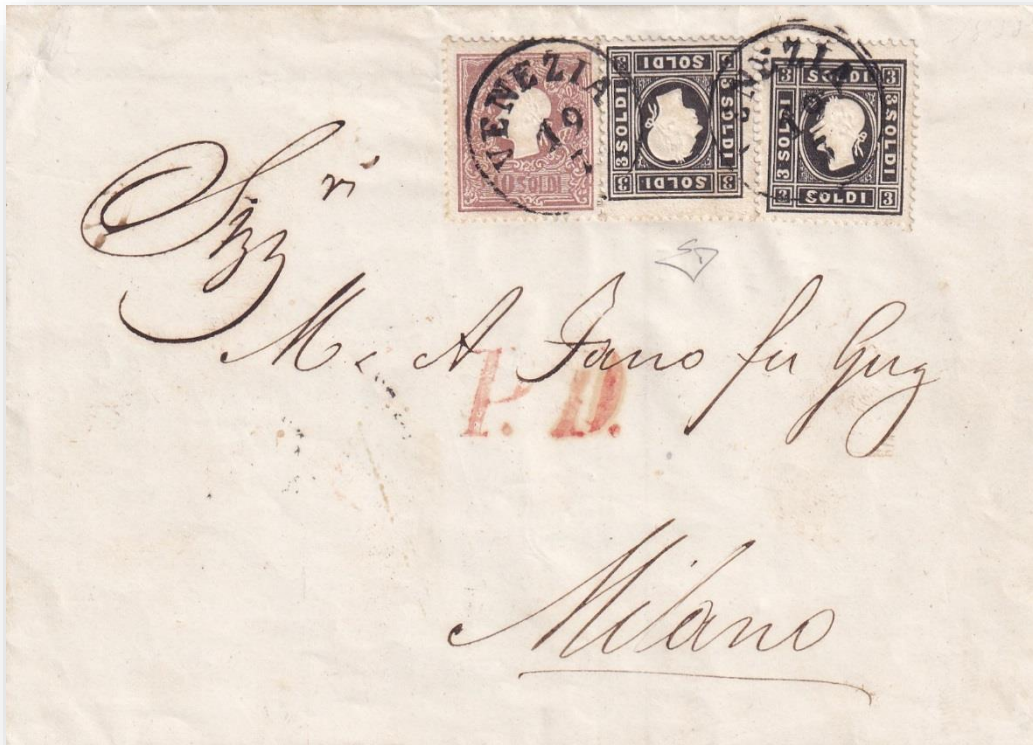 VENEZIA
19
10 SOLDI
3 SOLDI 3
3 SOLDI
3 SOLDI
3 SOLDI 3
VENEZIA
19
3 SOLDI 3
3 SOLDI
3 SOLDI
3 SOLDI 3
M A Fano fu
P. D.
Milano